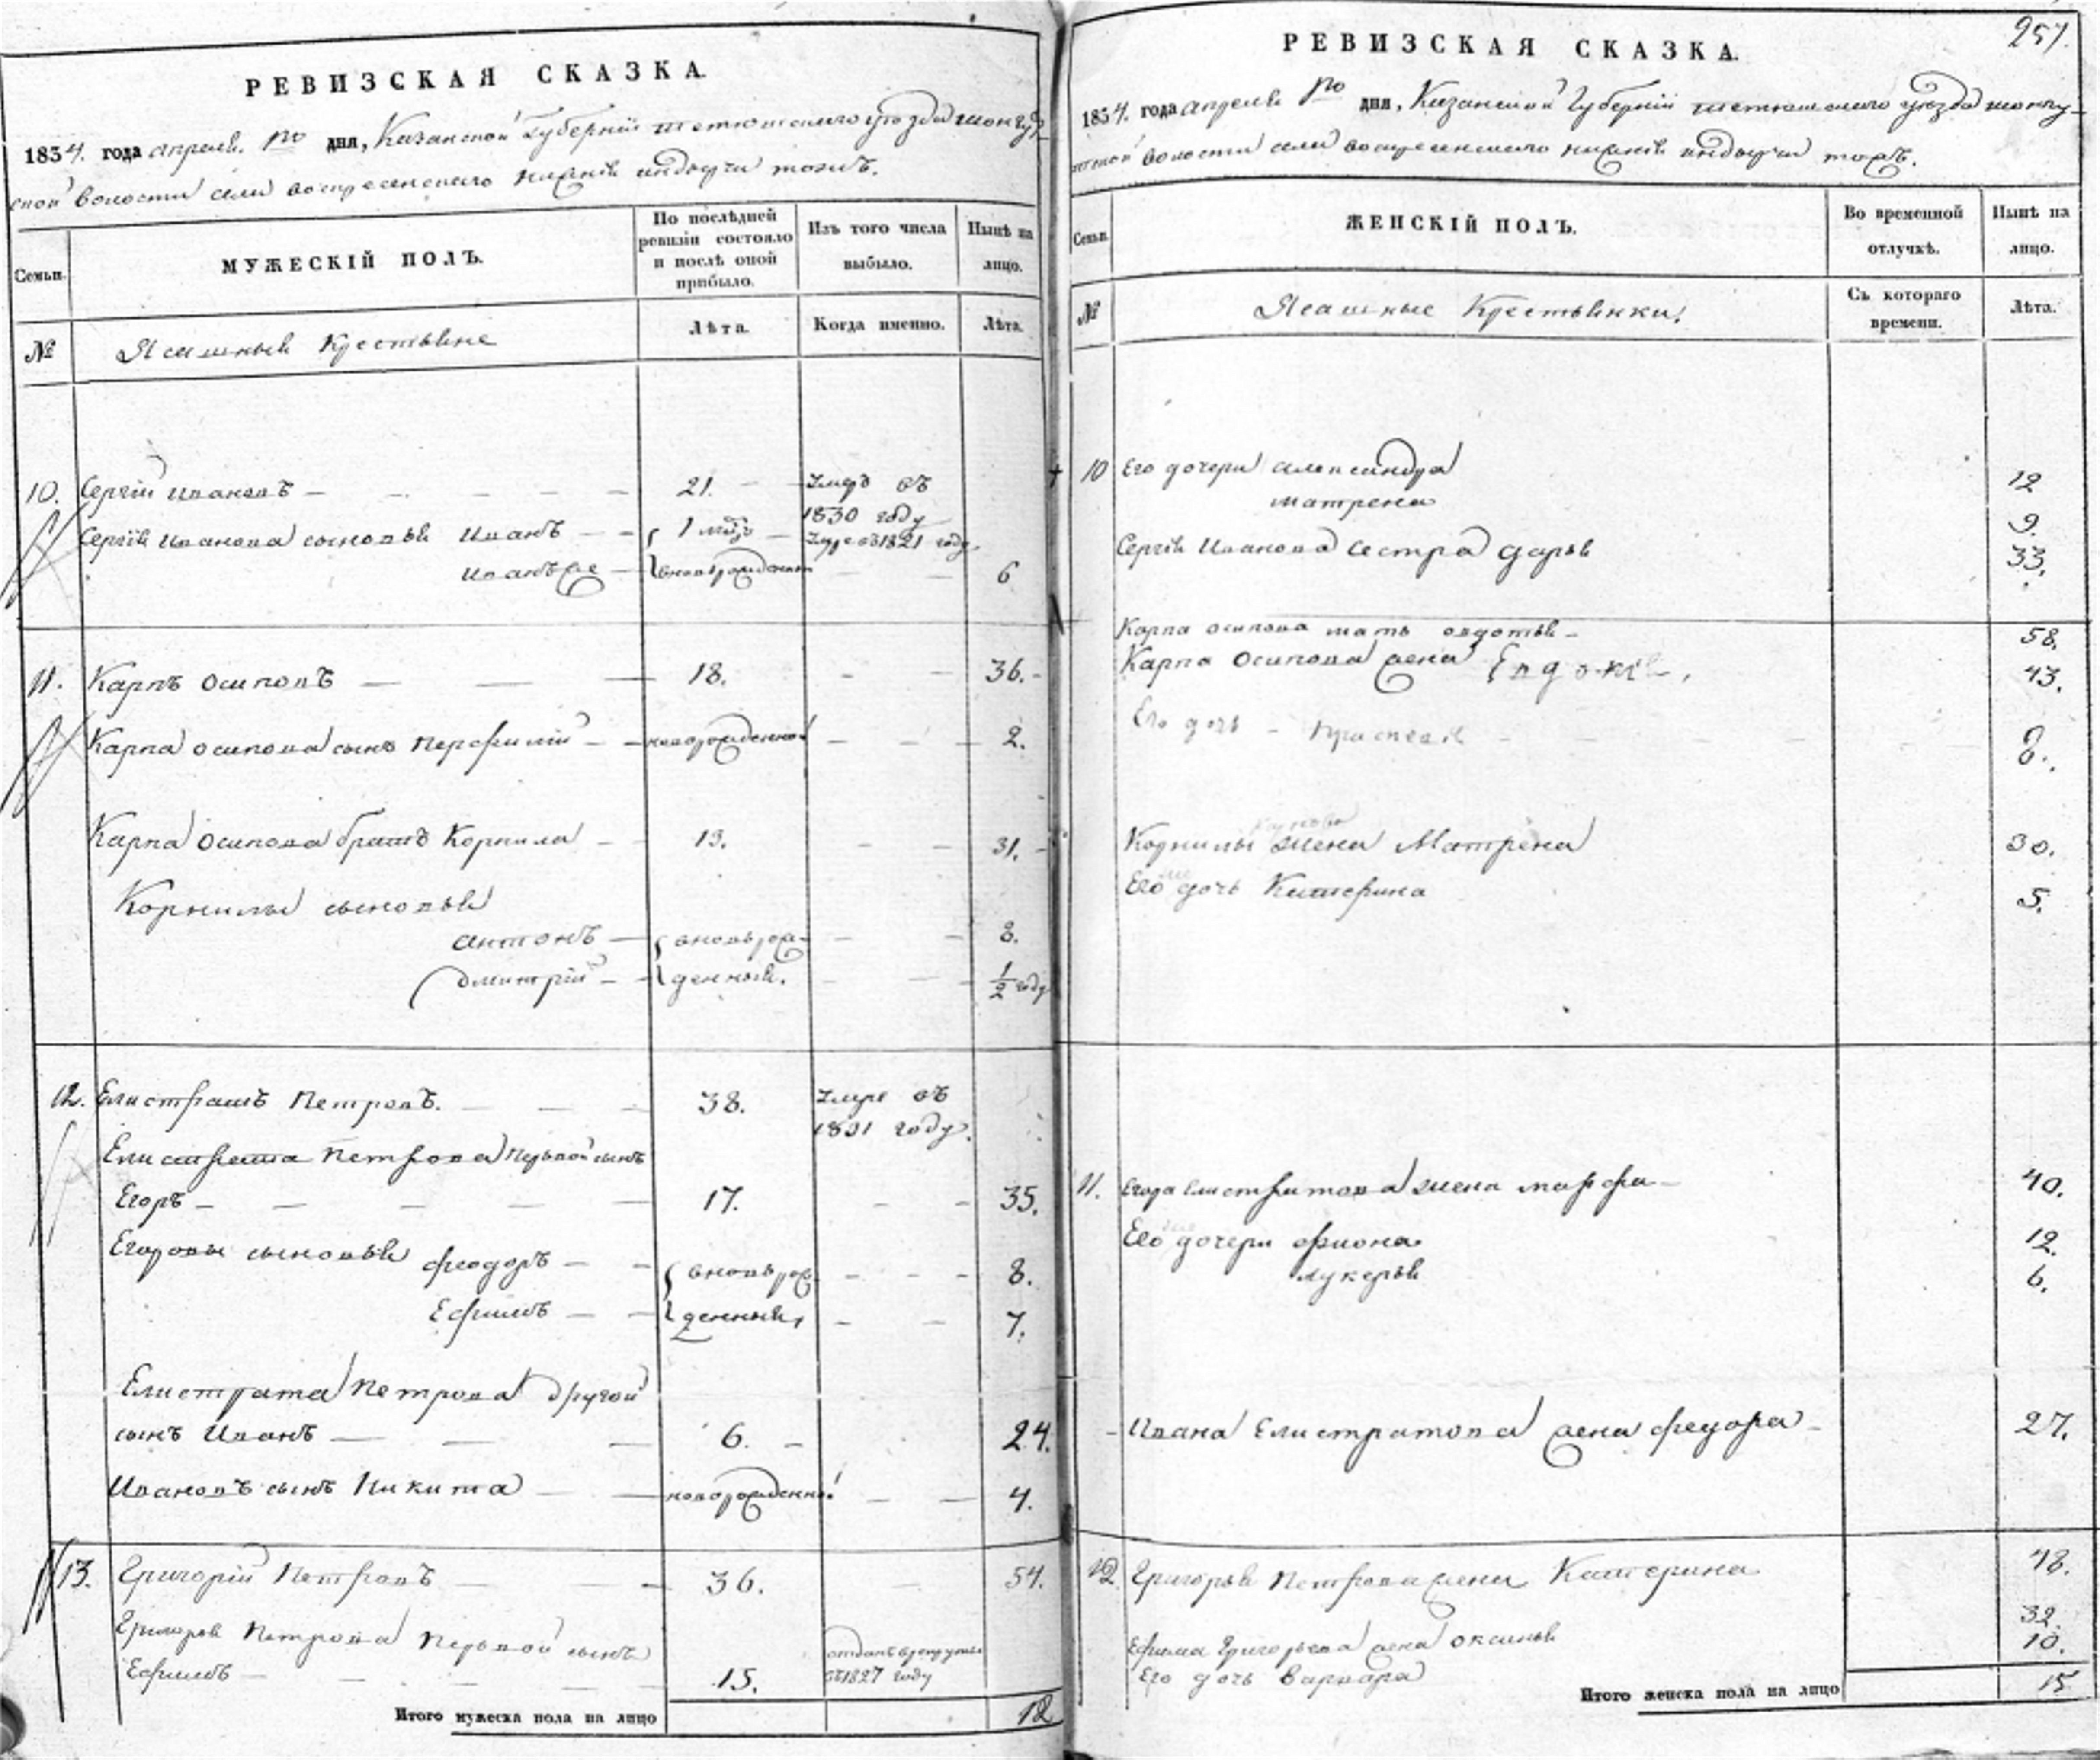 РЕВИЗСКАЯ СКАЗКА.
1834. года апреля. дня, Казанской Губерніи тетюшскаго уѣзда
ской волости села воскресенскаго нижнія индырчи тожъ.
Семьи.
МУЖЕСКІЙ ПОЛЪ.
По послѣдней ревизіи состояло и послѣ оной прибыло.
Изъ того числа выбыло.
Нынѣ на лицо.
№
Ясашныя Крестьяне
Лѣта.
Когда именно.
Лѣта.
10. Сергій Ивановъ 21. Умеръ въ
1830 году
Сергія Иванова сыновья Иванъ 1 Умре въ 1821 году
Иванъ же вновьрожденны 6
11. Карпъ Осиповъ 18. 36.
Карпа осипова сынъ Перфилій новорожденной 2.
Карпа Осипова братъ Корнила 13. 31.
Корнилы сыновья
антонъ вновь рож- 8.
Дмитрій денныя. 1/2 году
12. Елистратъ Петровъ. 38. Умре въ
1831 году.
Елистрата Петрова Первой сынъ
Егоръ 17. 35.
Егоровы сыновья феодоръ вновь рож 8.
Ефимъ денныя, 7.
Елистрата Петрова другой
сынъ Иванъ 6. 24.
Ивановъ сынъ Никита новорожденно 4.
13. Григорій Петровъ 36. 54.
Григорья Петрова Первой сынъ отданъ в рекруты
Ефимъ 15. въ 1827 году
Итого мужеска пола на лицо 12
257.
РЕВИЗСКАЯ СКАЗКА.
1834. года апреля дня, Казанской Губерніи тетюшскаго уѣзда
волости села воскресенскаго нижнія индырчи тожъ.
Семьи.
ЖЕНСКІЙ ПОЛЪ.
Во временной отлучкѣ.
Нынѣ на лицо.
№
Ясашные Крестьянки.
Съ котораго времени.
Лѣта.
10 Его дочери александра 12
матрена 9.
Сергія Иванова сестра дарья 33.
Карпа осипова мать овдотья 58.
Карпа Осипова жена Евдокія, 43.
Его дочь Прасковья 8.
Корнилы Карпова жена Матрена 30.
Его дочь Катерина 5.
11. Егора Елистратова жена марфа 40.
Его дочери фиона 12.
лукерья 6.
Ивана Елистратова жена федора 27.
12. Григорья Петрова жена Катерина 48.
Ефима Григорьева жена оксинья 32.
Его дочь варвара 10.
Итого женска пола на лицо 15